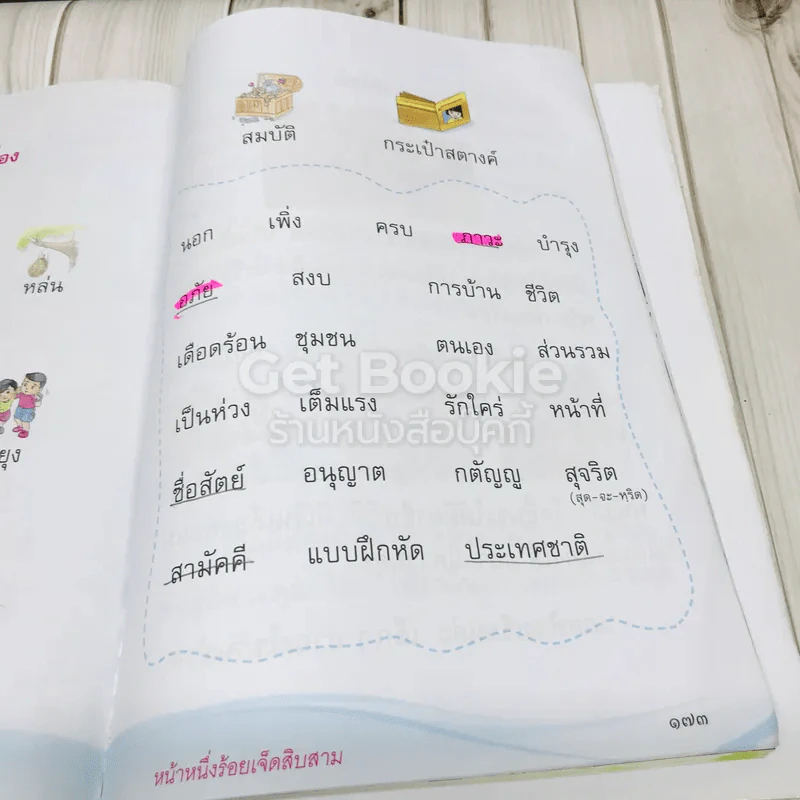 สมบัติ กระเป๋าสตางค์
นอก เพิ่ง ครบ ภาวะ บำรุง
อภัย สงบ การบ้าน ชีวิต
เดือดร้อน ชุมชน ตนเอง ส่วนรวม
Get Bookie
เป็นห่วง เต็มแรง รักใคร่ หน้าที่
ร้านหนังสือบุคกี้
ซื่อสัตย์ อนุญาต กตัญญู สุจริต
(สุด-จะ-หริด)
สามัคคี แบบฝึกหัด ประเทศชาติ
๑๗๓
หน้าหนึ่งร้อยเจ็ดสิบสาม
หล่น